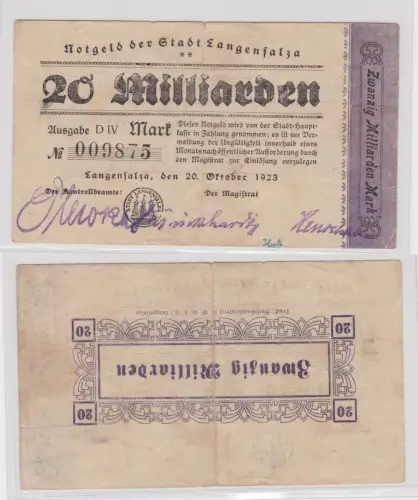 Notgeld der Stadt Langensalza
20 Milliarden
Ausgabe D IV Mark
№ 009875
Dieses Notgeld wird von der Stadt-Haupt-
kasse in Zahlung genommen; es ist zur Ver-
meidung der Ungültigkeit innerhalb eines
Monats nach öffentlicher Aufforderung durch
den Magistrat zur Einlösung vorzulegen
Langensalza, den 20. Oktober 1923
Der Kontrollbeamte:
Der Magistrat
Zwanzig Milliarden Mark
20
20
Zwanzig Milliarden
20
20